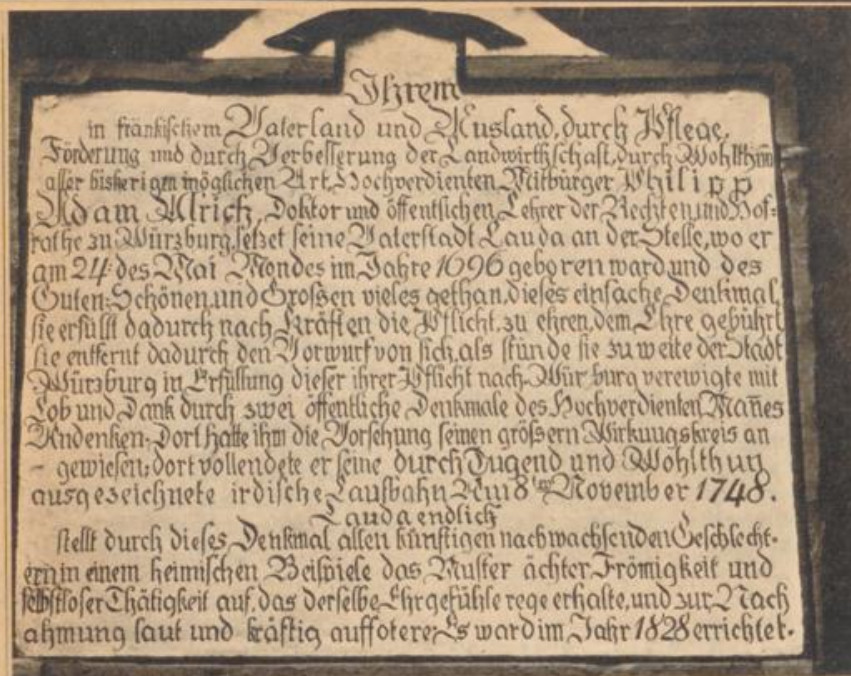 Ihrem
in fränkischem Vaterland und Ausland, durch Pflege,
Förderung und durch Verbesserung der Landwirthschaft, durch Wohlthun
aller biskerigen möglichen Art, Hochverdienten Mitbürger Philipp
Adam Ulrich, Doktor und öffentlichen Lehrer der Rechten und Hof=
rathe zu Würzburg, setzet seine Vaterstadt Lauda an der Stelle, wo er
am 24: des Mai Mondes im Jahre 1696 geboren ward und des
Guten-Schönen und Grossen vieles gethan, dieses einfache Denkmal,
sie erfüllt dadurch nach Kräften die Pflicht, zu ehren, dem Ehre gebührt
sie entfernt dadurch den Vorwurf von sich, als stünde sie zu weite der Stadt
Würzburg in Erfüllung dieser ihrer Pflicht nach. Würzburg verewigte mit
Lob und Dank durch zwei öffentliche Denkmale des Hochverdienten Mañes
Andenken: Dort hatte ihm die Vorsehung seinen grössern Wirkungskreis an
- gewiesen: dort vollendete er seine durch Tugend und Wohlthun
ausgezeichnete irdische Laufbahn Am 8ten November 1748.
Lauda endlich
stellt durch dieses Denkmal allen künftigen nachwachsenden Geschlecht-
ern in einem heimischen Beispiele das Muster ächter Frömigkeit und
selbstloser Thätigkeit auf, das derselbe Ehrgefühle rege erhalte, und zur Nach
ahmung laut und kräftig auffotere: Es ward im Jahr 1828 errichtet.